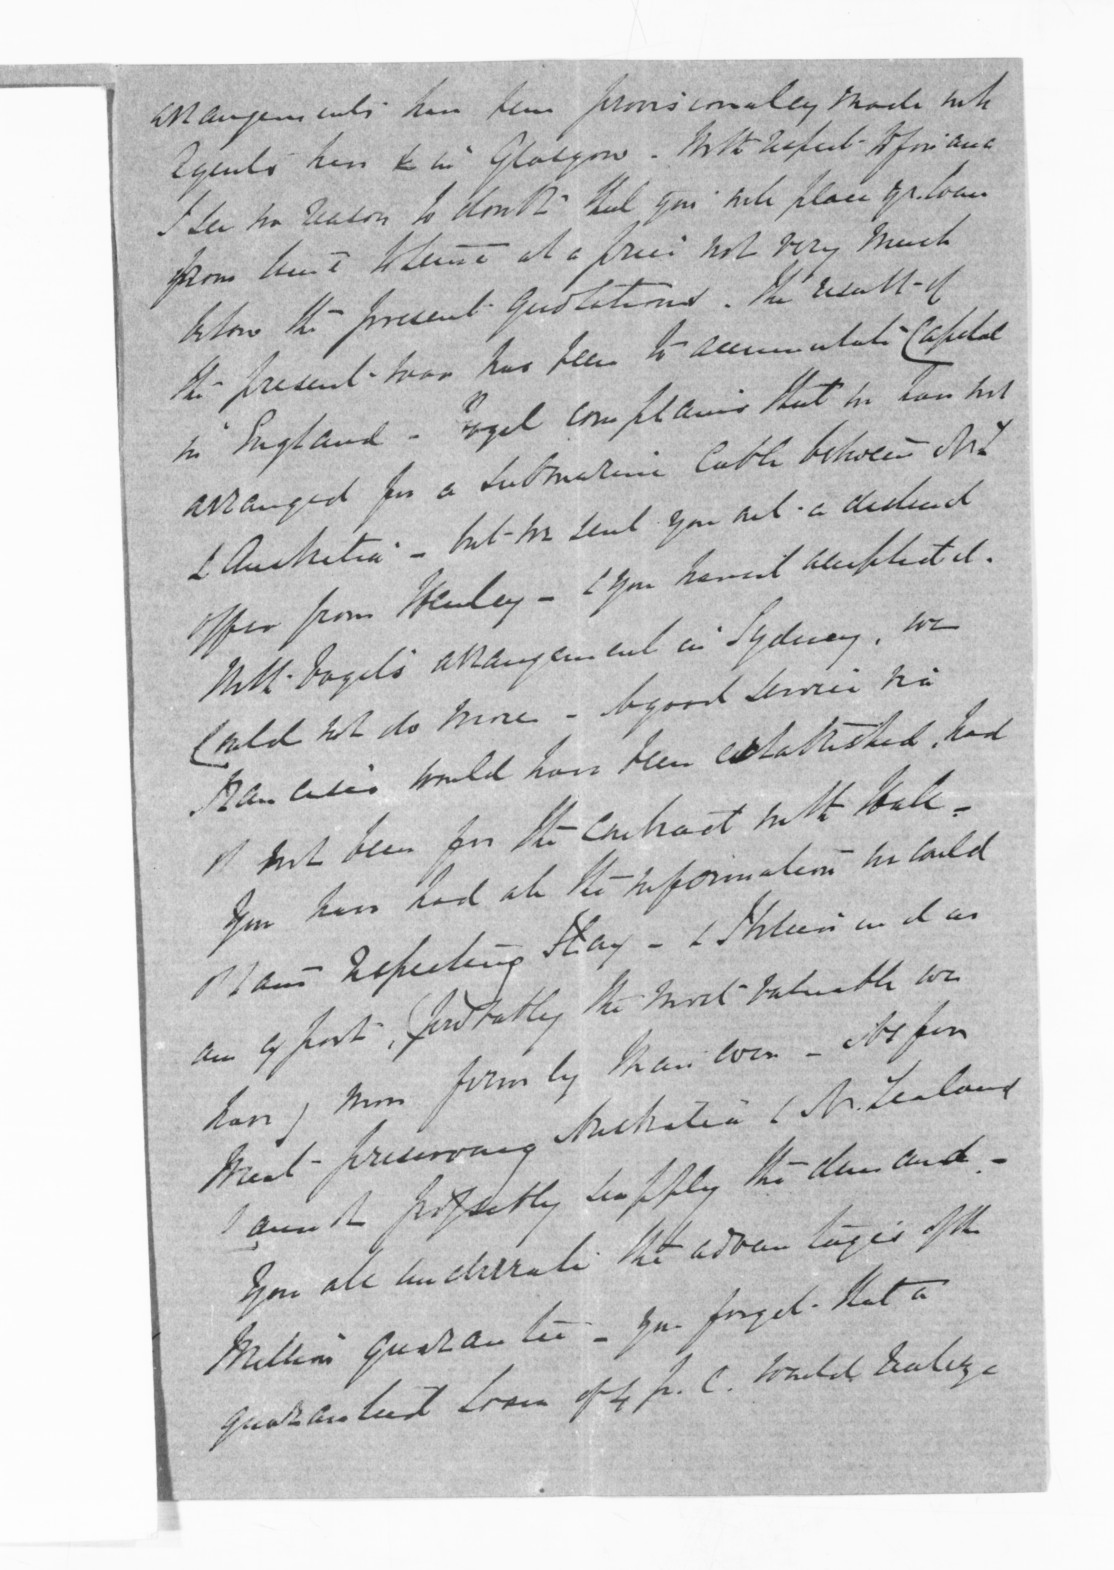 arrangements have been provisionally made with
Agents here & in Glasgow. With respect to finance
I see no reason to doubt that you will place yr. Loan
from time to time at a price not very much
below the present quotations. The result of
the present war has been to accumulate Capital
in England - Vogel complains that we have not
arranged for a submarine Cable between N.Z
& Australia - but we sent you out a decided
offer from Henley - & you havent accepted it.
With Vogel's arrangement in Sydney, we
Could not do more - A good service via
Francisco would have been established, had
it not been for the Contract with Hall -
You have had all the information we could
obtain respecting Flax - & I believe in it as
an export, (probably the most valuable we
have) more firmly than ever - As for
Meat-preserving Australia & N. Zealand
cannot possibly supply the demand. -
You all underrate the advantages of the
Million guarantee - you forget that a
guaranteed Loan of 4 p. c. would realize